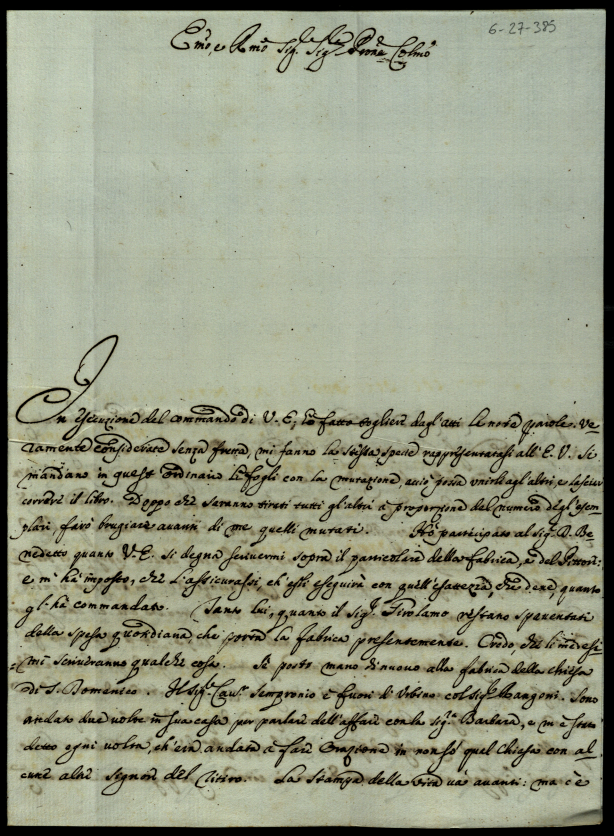 6-27-385
Emo, e Rmo Sig.re Sig.re Prone Colmo
In esecuzione del commando di V. E., hò fatto togliere dagl'atti le note parole. Ve-
ramente considerate senza fretta, mi fanno la stessa specie rappresentatasi all'E. V. Si
mandano in quest'ordinario li fogli con la mutazione, acciò possa unirle agl'altri, e lasciar
correre il libro. Doppo che saranno tirati tutti gl'altri à proporzione del numero degl'esem-
plari, farò brugiare avanti di me quelli mutati. Hò participato al Sig.r D. Be-
nedetto quanto V. E. si degna scrivermi sopra il particolare della fabrica, e del Pittore:
e m'hà imposto, che l'assicurassi, ch'egli eseguirà con quell'esattezza che deve, quanto
gl'hà commandato. Tanto lui, quanto il Sig.r Girolamo restano spaventati
della spesa quotidiana, che porta la fabrica presentemente. Credo, che li medesi-
mi scriveranno qualche cosa. Si è posto mano di nuovo alla fabrica della chiesa
di S. Domenico. Il Sig.r Cav.re Sempronio è fuori di Urbino col Sig.r Mangoni. Sono
andato due volte in sua casa per parlare dell'affare con la Sig.ra Barbara, e m'è stato
detto ogni volta, ch'era andata à fare orazione in non sò quel Chiesa con al-
cune altre Signore del ritiro. La stampa della vita và avanti: ma c'è